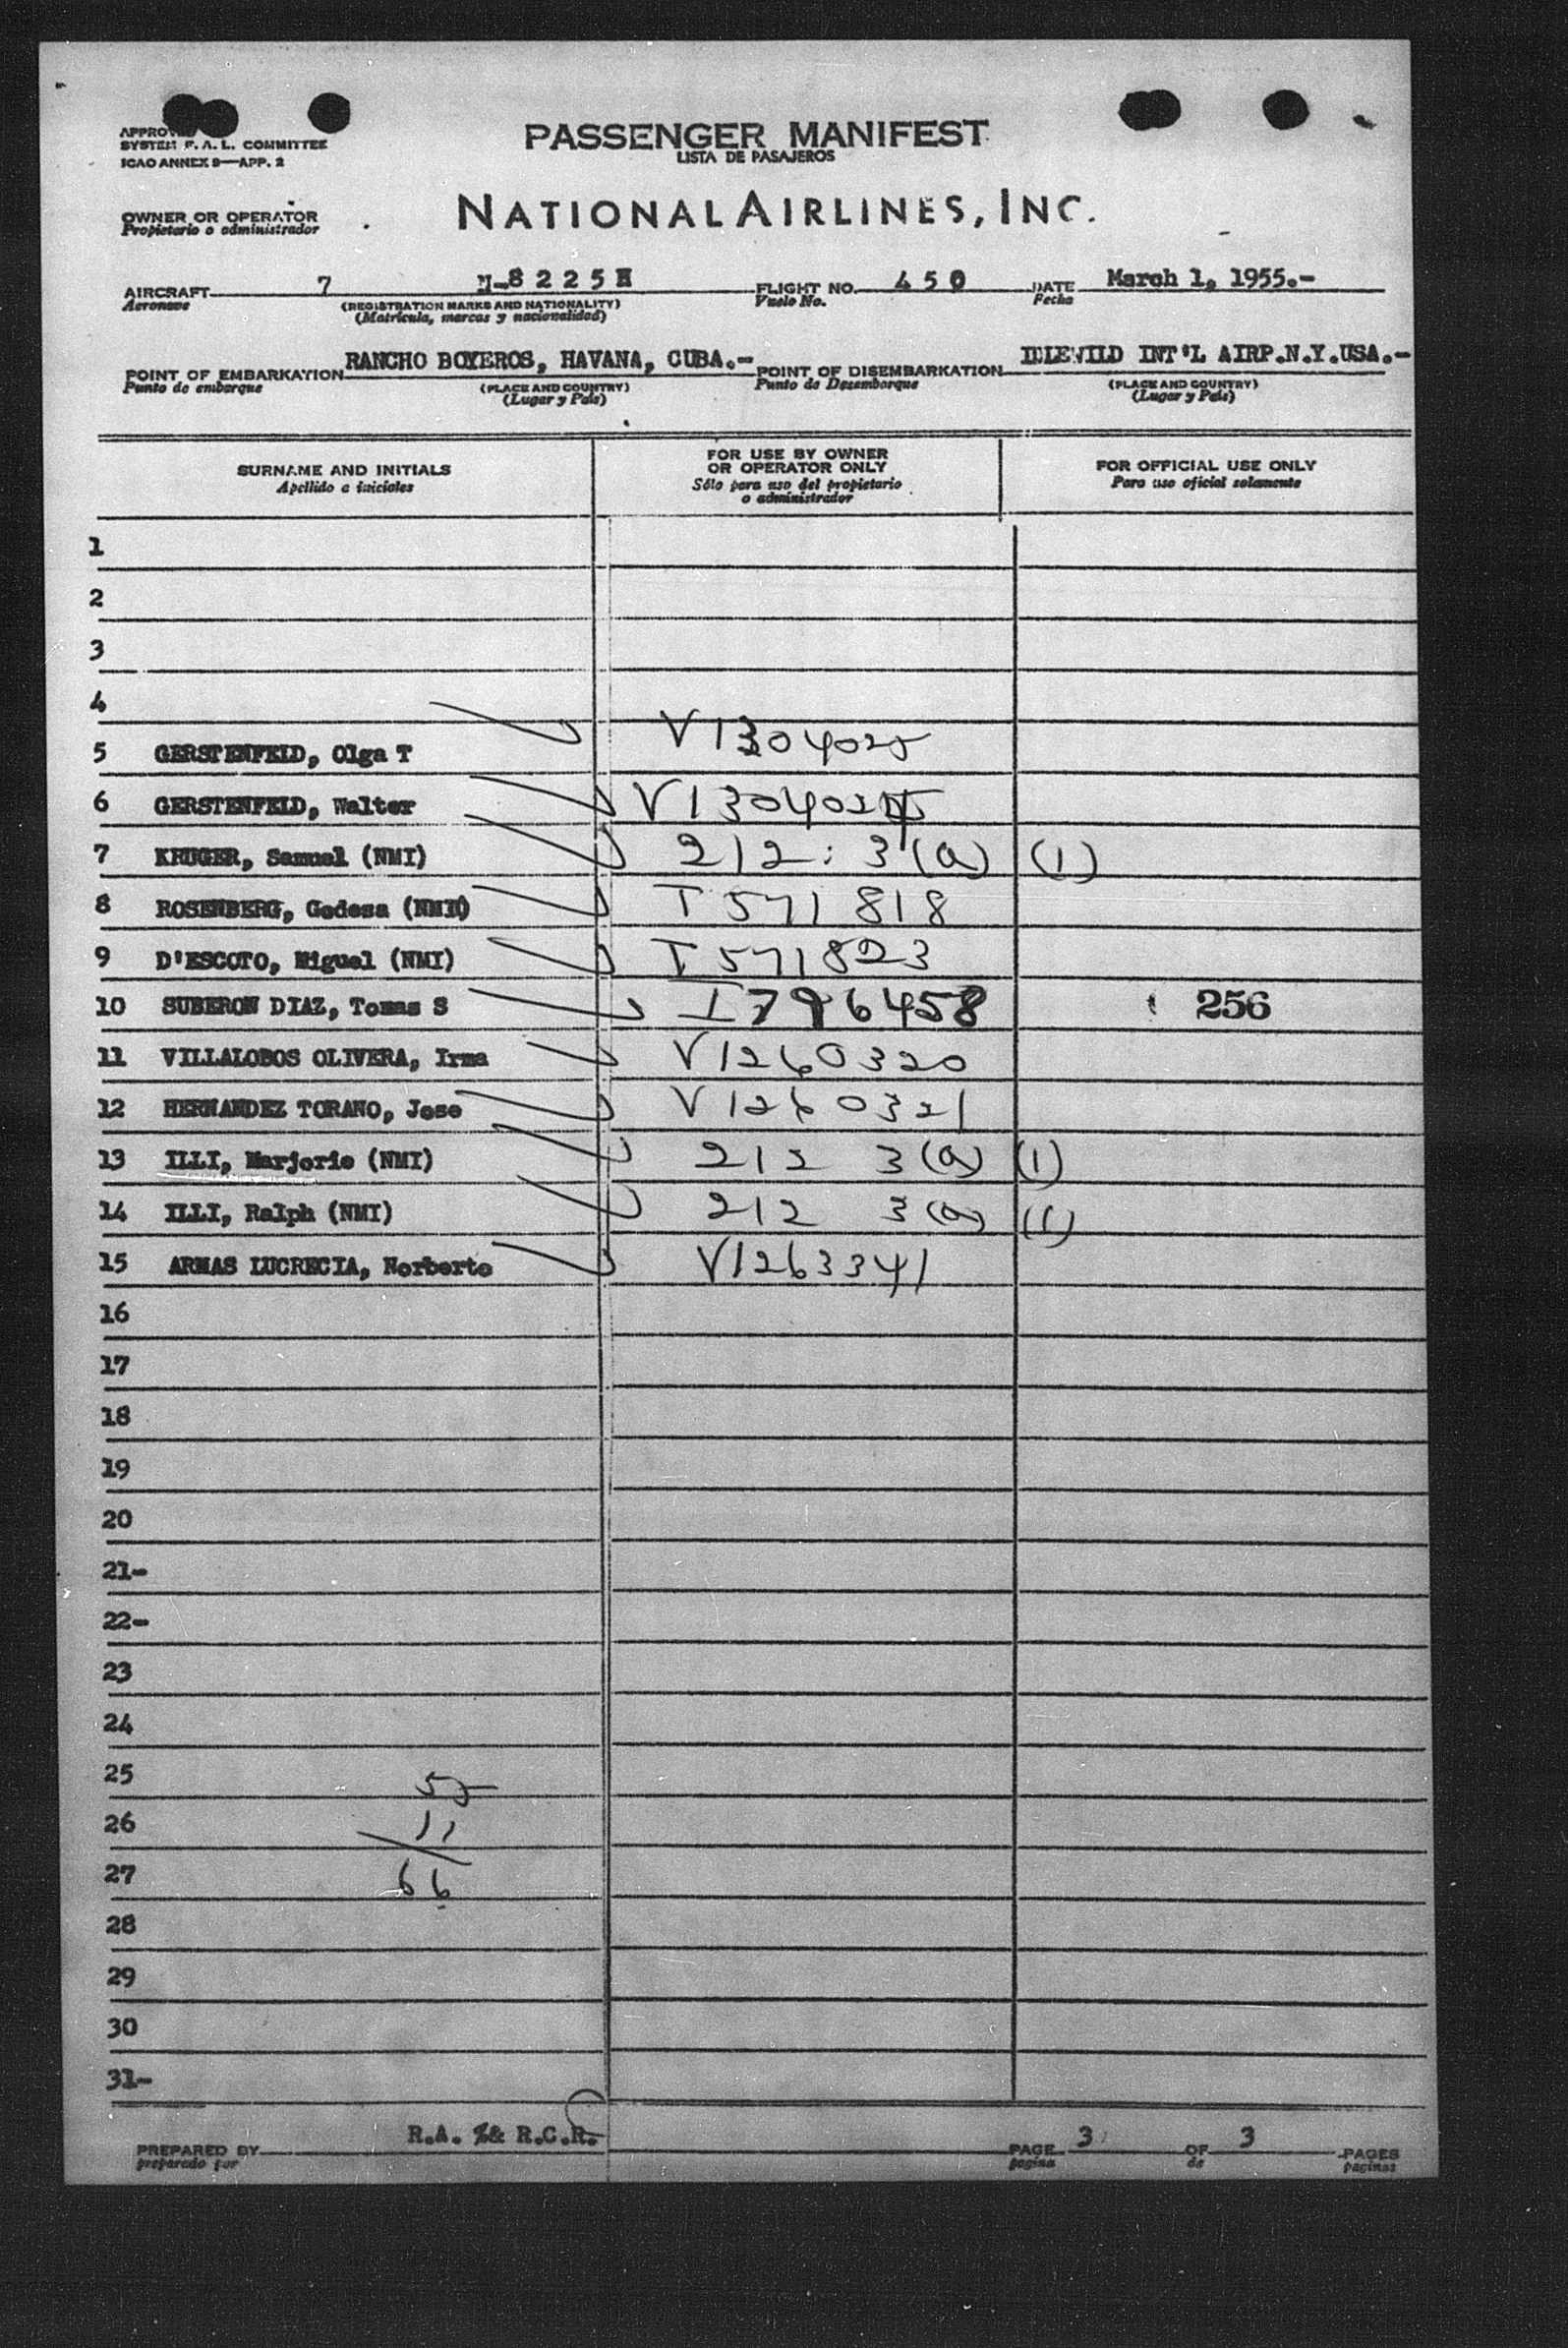 PASSENGER MANIFEST
LISTA DE PASAJEROS
SYSTEM F. A. L. COMMITTEE
ICAO ANNEX 9—APP. 2
NATIONAL AIRLINES, INC.
OWNER OR OPERATOR
Propietario o administrador
AIRCRAFT 7 N-8225H FLIGHT NO. 450 DATE March 1, 1955.-
Aeronave (REGISTRATION MARKS AND NATIONALITY) Vuelo No. Fecha
(Matrícula, marcas y nacionalidad)
POINT OF EMBARKATION RANCHO BOYEROS, HAVANA, CUBA.- POINT OF DISEMBARKATION IDLEWILD INT'L AIRP.N.Y.USA.-
Punto de embarque (PLACE AND COUNTRY) Punto de Desembarque (PLACE AND COUNTRY)
(Lugar y País) (Lugar y País)
SURNAME AND INITIALS
Apellido e iniciales
FOR USE BY OWNER
OR OPERATOR ONLY
Sólo para uso del propietario
o administrador
FOR OFFICIAL USE ONLY
Para uso oficial solamente
1
2
3
4
5 GERSTENFELD, Olga T V1304025
6 GERSTENFELD, Walter
7 KRUGER, Samuel (NMI) 212: 3(a) (1)
8 ROSENBERG, Godesa (NMI) T571818
9 D'ESCOTO, Miguel (NMI) T571823
10 SUBERON DIAZ, Tomas S 256
11 VILLALOBOS OLIVERA, Irma V1260320
12 HERNANDEZ TORANO, Jose V1260321
13 ILLI, Marjorie (NMI) 212 3(a) (1)
14 ILLI, Ralph (NMI) 212 3(a) (1)
15 ARMAS LUCRECIA, Norberto V1263341
16
17
18
19
20
21-
22-
23
24
25 55
26 11
27 66
28
29
30
31-
PREPARED BY R.A. & R.C.R. PAGE 3 OF 3 PAGES
preparado por pagina de paginas